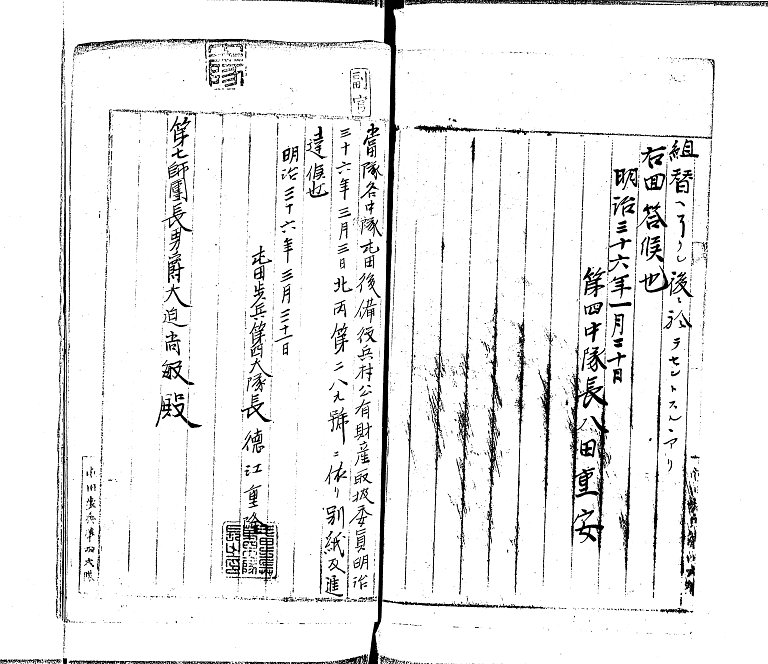 組替ヘ引
後ニ於
ラセントスルニアリ
右回答候也
明治三十六年一月三十日
第四中隊長八田重安
副官
當隊各中隊屯田後備役兵村公有財産取扱委員明治
三十六年三月三日北丙第二八九號ニ依リ別紙及進
達候也
明治三十六年三月三十一日
屯田歩兵第四大隊長徳江重隆
第七師團長男爵大迫尚敏殿
屯田歩兵第四大隊